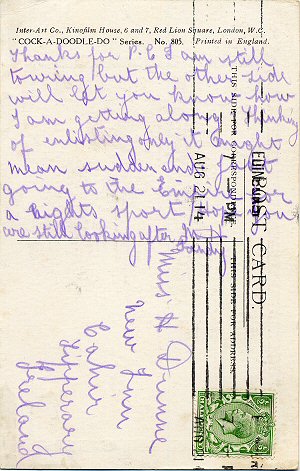 Inter-Art Co., Kingfilm House, 6 and 7, Red Lion Square, London, W.C.
"COCK-A-DOODLE-DO" Series. No. 805. Printed in England.
Thanks for P.C I am still
touring, but the other side
will let you know how
I am getting along. Thinking
of enlisting only it might
mean sudden end. Just
going to the Empire for
a nights sport. hope you
are still looking after
Sandy
POST CARD.
THIS SIDE FOR CORRESPONDENCE.
THIS SIDE FOR ADDRESS.
EDINBURGH
PM
AUG 21 14
Miss H Dunne
New Inn
Cahir
Tipperary
Ireland